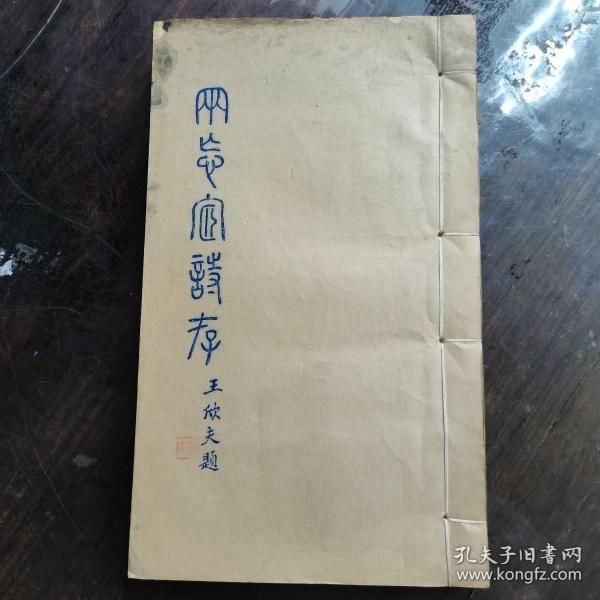 兩忘宧詩存
王欣夫題
孔夫子旧書网
www.kongfz.com